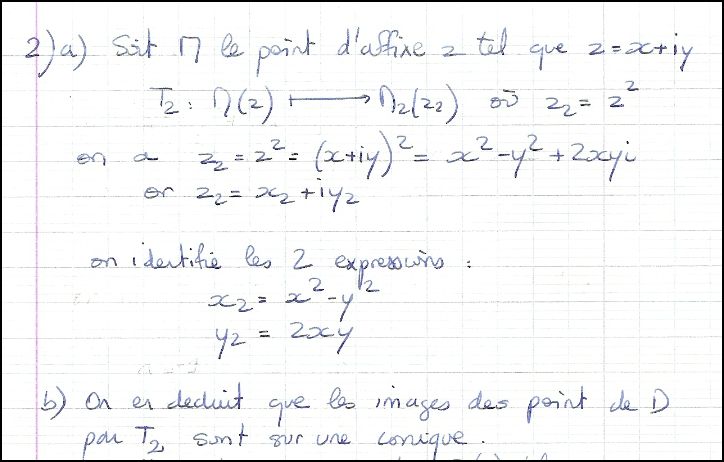 2) a) Soit M le point d'affixe z tel que z = x+iy
T₂ : M(z) ⟼ M₂(z₂) où z₂ = z²
on a z₂ = z² = (x+iy)² = x²-y²+2xyi
or z₂ = x₂+iy₂
on identifie les 2 expressions :
x₂ = x²-y²
y₂ = 2xy
b) On en deduit que les images des point de D
par T₂ sont sur une conique.